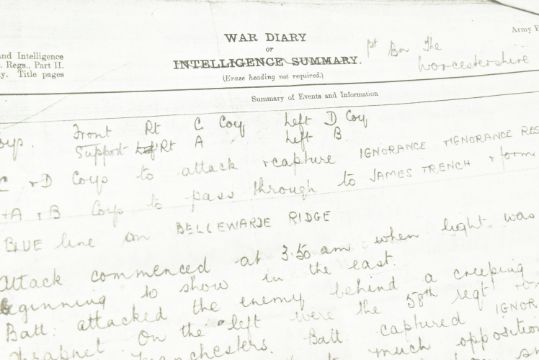 WAR DIARY
OR
INTELLIGENCE SUMMARY.
(Erase heading not required.)
and Intelligence
Regs., Part II.
Title pages
Army
1st Bn The
Worcestershire
Summary of Events and Information
Front Rt C Coy Left D Coy
Support Rt A Left B
C & D Coys to attack & capture IGNORANCE & IGNORANCE RES
A & B Coys to pass through to JAMES TRENCH & form
BLUE line on BELLEWARDE RIDGE
Attack commenced at 3.50 am when light was
beginning to show in the east.
Batt. attacked the enemy behind a creeping
On the left were the 58th regt
Batt captured IGNOR
much opposition